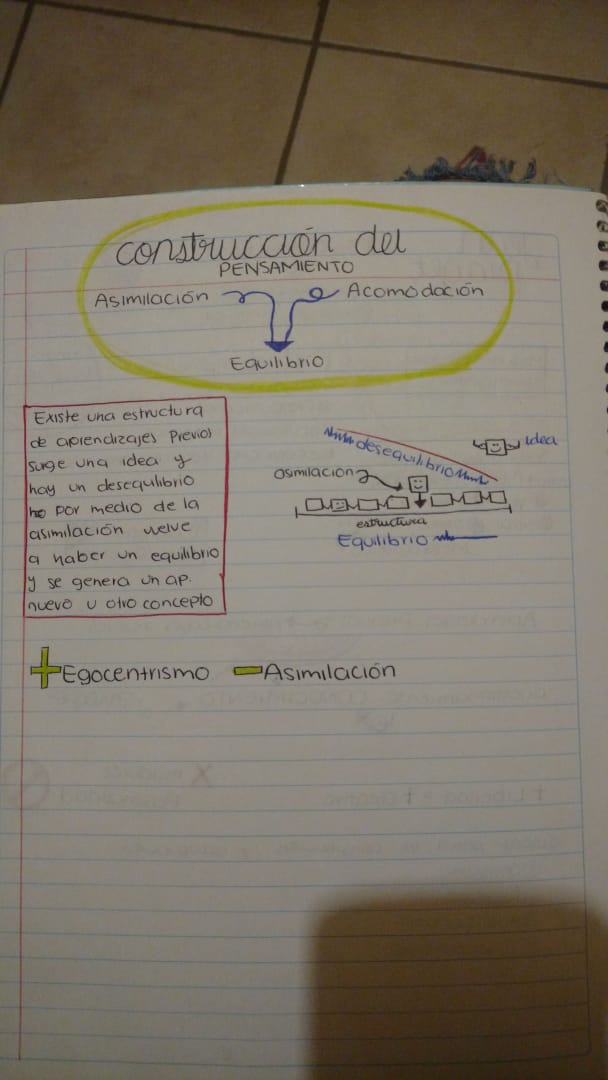 construcción del
PENSAMIENTO
Asimilación
Acomodación
Equilibrio
Existe una estructura
de aprendizajes previos
surge una idea y
hay un desequilibrio
por medio de la
asimilación vuelve
a haber un equilibrio
y se genera un ap.
nuevo u otro concepto
desequilibrio
idea
asimilación
estructura
Equilibrio
+Egocentrismo -Asimilación